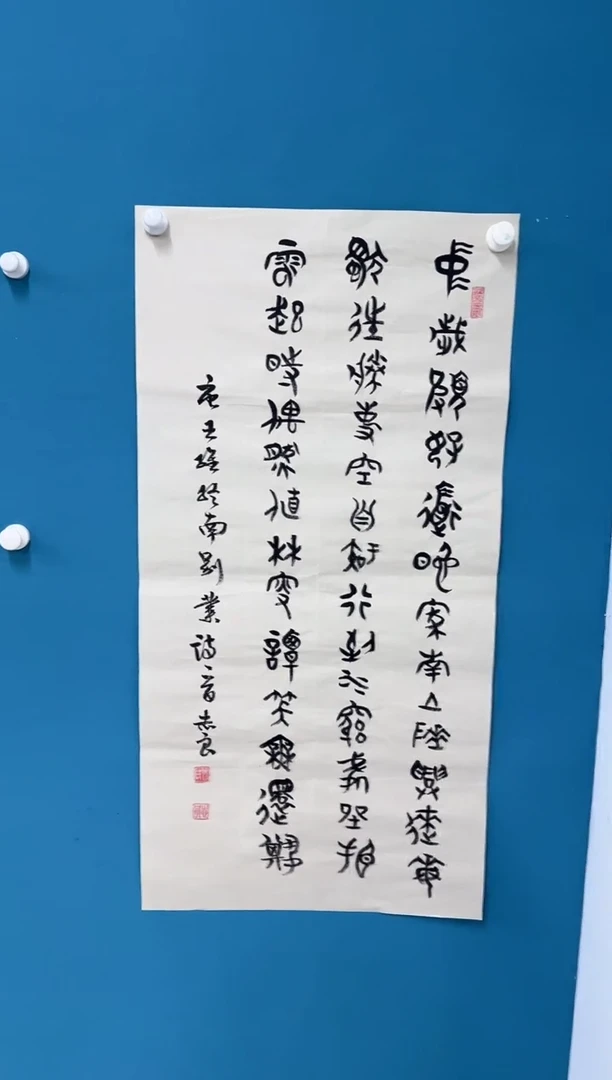 中歲頗好道晚家南山陲興來每
獨往勝事空自知行到水窮處坐看
雲起時偶然值林叟談笑無還期
唐王維終南別業詩一首志良